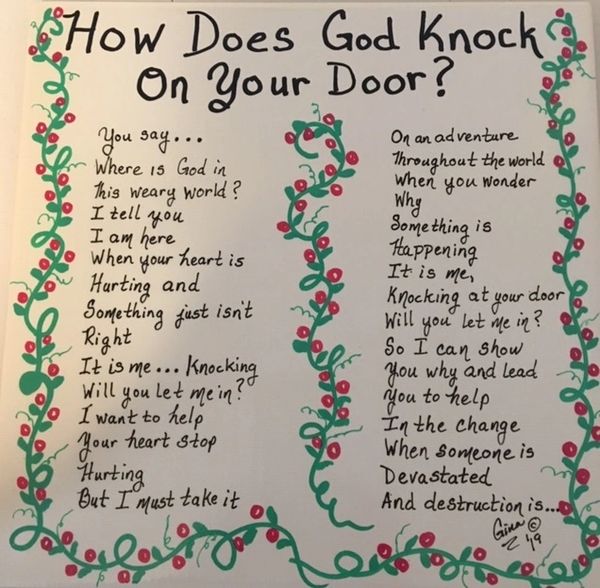 How Does God Knock
On Your Door?
You say...
Where is God in
This weary world?
I tell you
I am here
When your heart is
Hurting and
Something just isn't
Right
It is me... Knocking
Will you Let me in?
I want to help
Your heart stop
Hurting
But I must take it
On an adventure
Throughout the world
When you wonder
Why
Something is
Happening
It is me,
Knocking at your door
Will you let me in?
So I can show
You why and lead
You to help
In the change
When someone is
Devastated
And destruction is...
Gina ©
Z '19